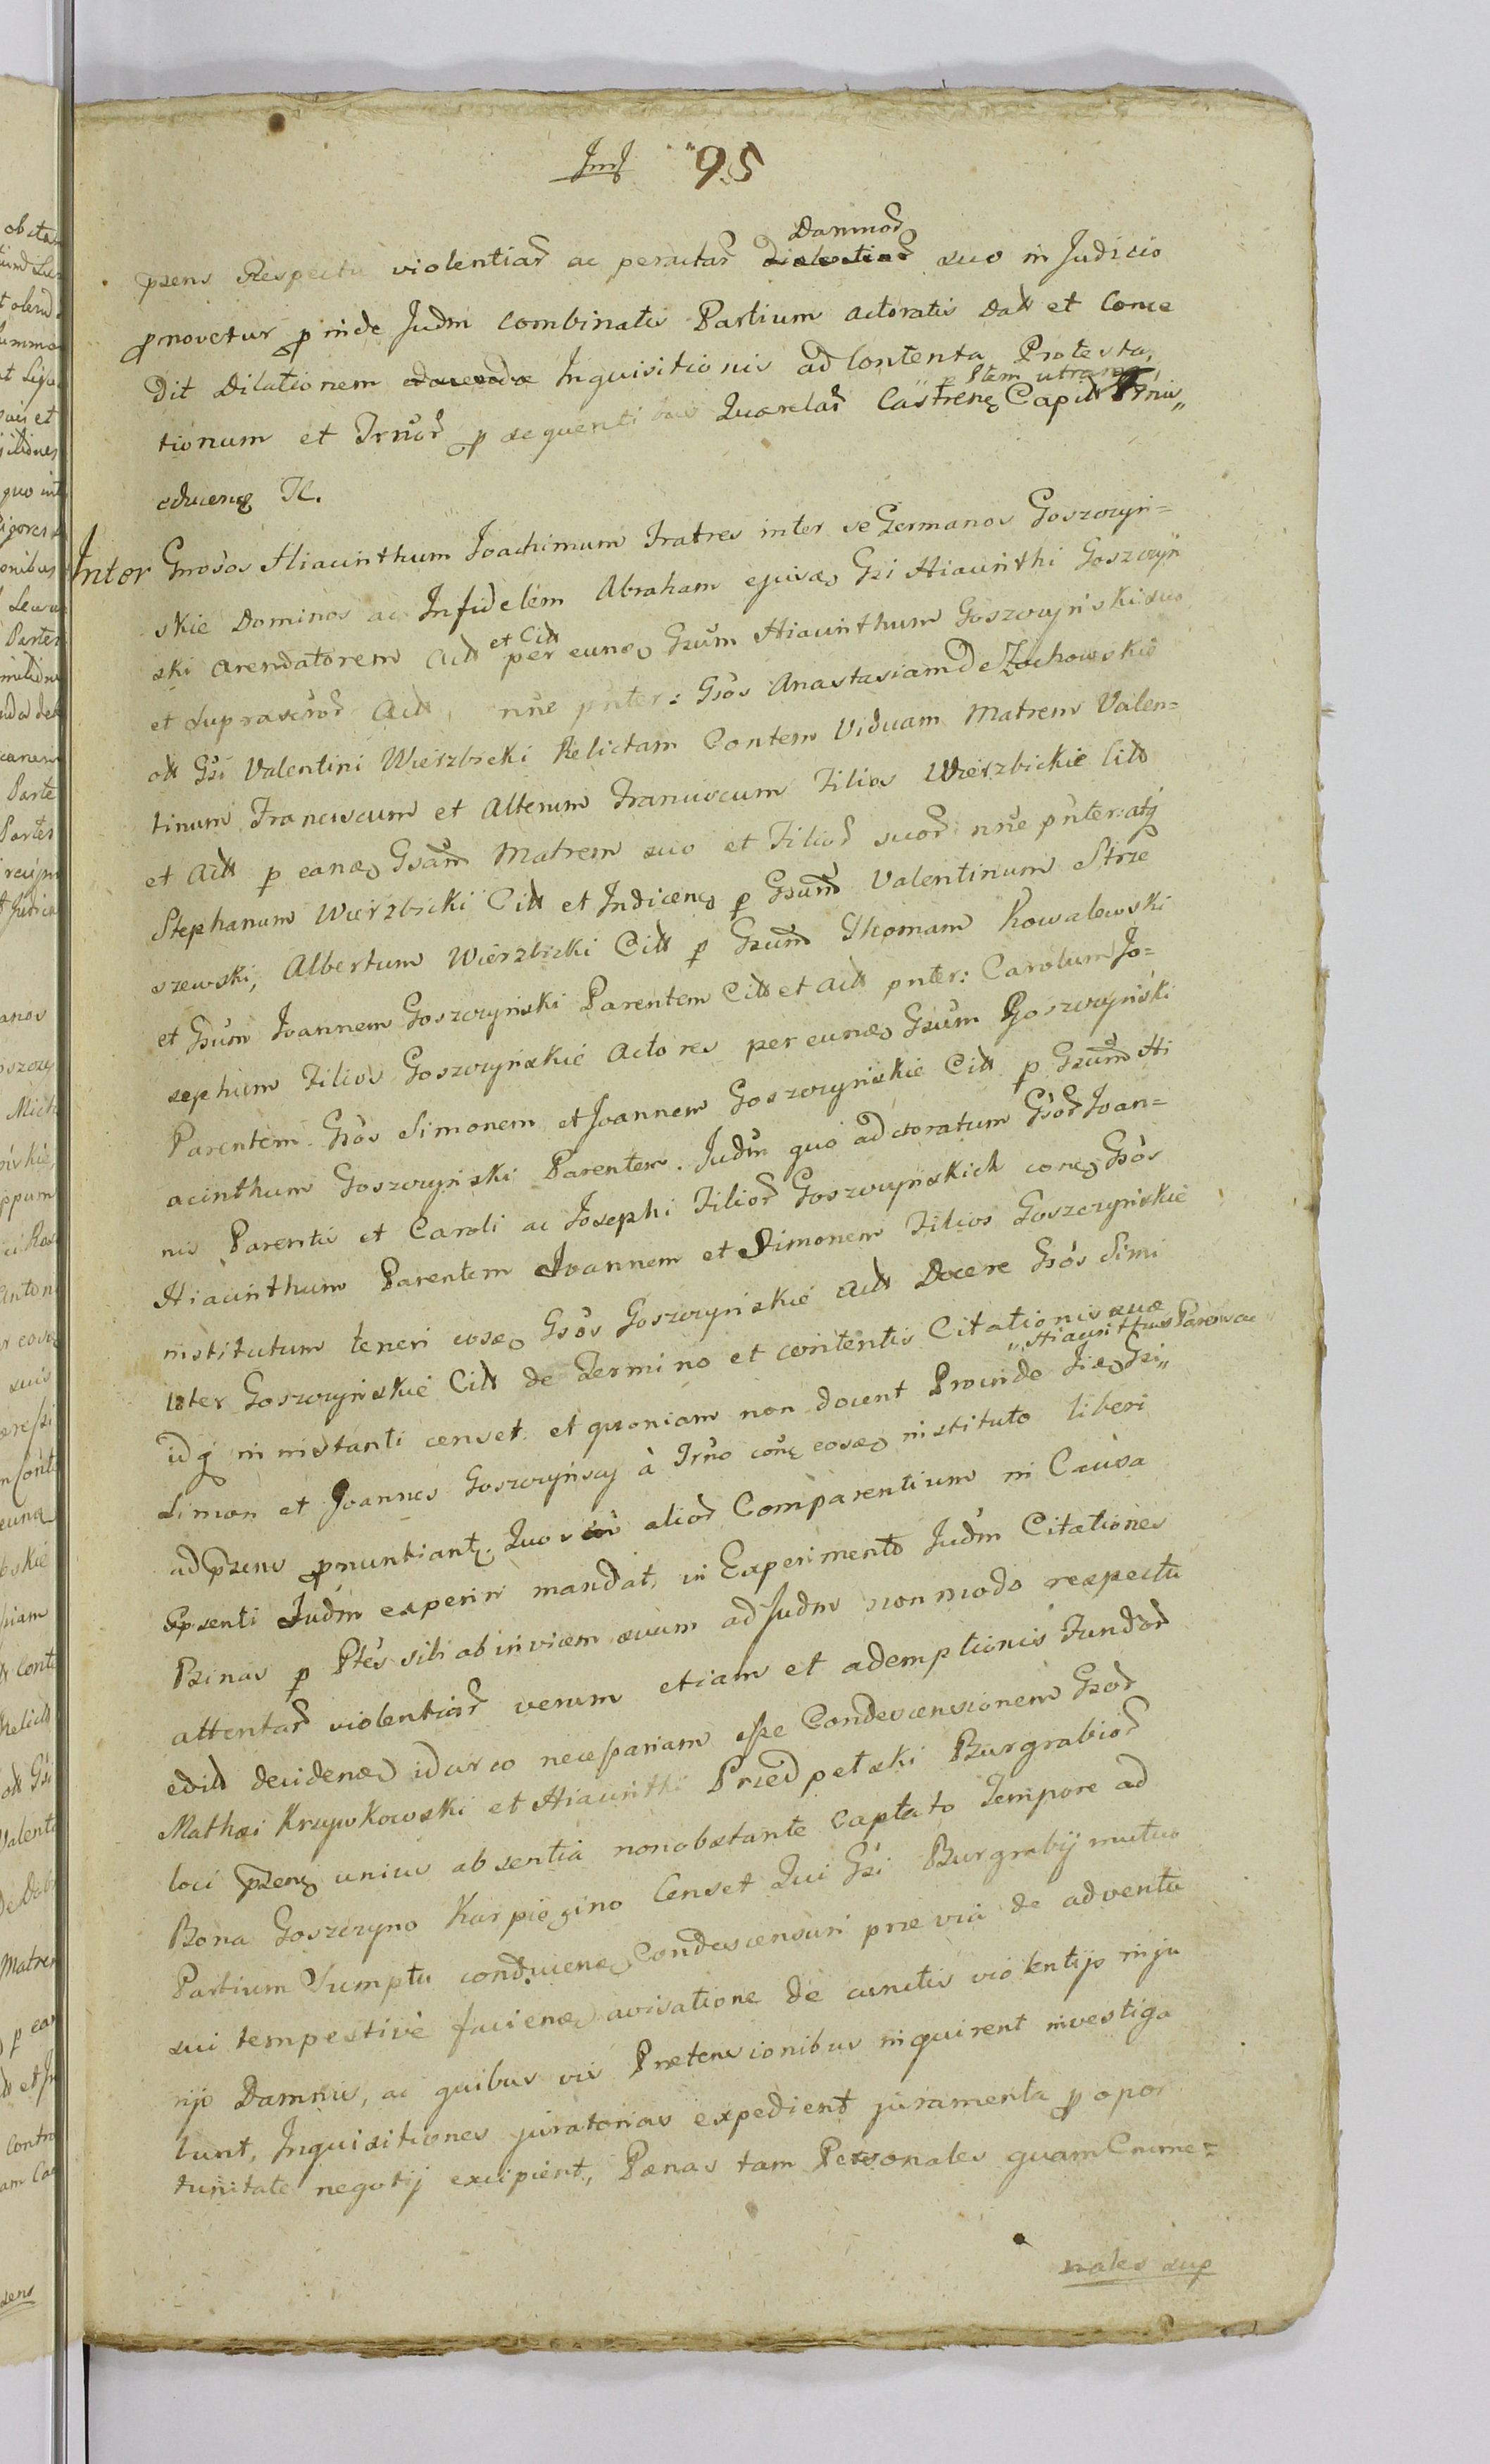 95
Damnor
psens Respectu violentiar ac peractar suo in Judicio
pmovetur pinde Judm combinatis Partium actoratis datt et Conce
dit Dilationem educendae Inquisitionis ad Contenta Protesta,
p Ptem utramq
tionum et Trnor p sequentibus Querelar Castrens Capitt Trnis
educeng Tt.
Inter Gnosos Hiacinthum Joachimum Fratres inter se Germanos Goszczyń=
skie Dominos ac Infidelem Abraham ejusd Gsi Hiacinthi Goszczyń
et Citt
ski arendatorem Actt per eund Gsum Hiacinthum Goszczyński suo
et suprascror Actt, nñe pnter: Gsos Anastasiam de Zochowskie
ott Gsi Valentini Wierzbicki Relictam Contem Viduam Matrem Valen=
tinum Franciscum et Alterum Franciscum Filios Wierzbickie Citt
et Actt p eand Gsam Matrem suo et Filior suor nñe pnter: atq
Stephanum Wierzbicki Citt et Indiceng p Gsum Valentinum Strze
szewski, Albertum Wierzbicki Citt p Gsum Thomam Kowalewski
et Gsum Joannem Goszczyński Parentem Citt et Actt pnter: Carolum Jo=
sephum Filios Goszczyńskie Actores per eund Gsum Goszczyński
Parentem. Gsos Simonem et Joannem Goszczyńskie Citt p Gsum Hi
acinthum Goszczyński Parentem. Judm quo ad ctoratum Gsor Joan=
nis Parentis et Caroli ac Josephi Filior Goszczyńskich cong Gsos
Hiacinthum Parentem Joannem et Simonem Filios Goszczyńskie
institutum teneri eosd Gsos Goszczyńskie Actt Docere Gsos Simi
liter Goszczyńskie Citt de Termino et contentis Citationis suae
„Hiacinthus Parens ac
idq in instanti censet. et quoniam non docent Proinde Iid Gsi„
Simon et Joannes Goszczyńscy à Trno cong eosd instituto liberi
ad psens pnuntiant. Quos alior Comparentium in Causa
psenti Judm experiri mandat, in Experimento Judm Citationes
Bzinas p Ptes sibi ab invicem suum ad Judm non modo respectu
attentar violentiar verum etiam et ademptionis Fundor
editt decidend idcirco necessariam esse Condescensionem Gsor
Mathaei Krzywkowski et Hiacinthi Przedpełski Burgrabior
loci pseng unius absentia nonobstante Captato Tempore ad
Bona Goszczyno Karpie gino Censet Qui Gsi Burgrabij mutuo
Partium Sumptu conduceng Condescensuri praevia de adventu
sui tempestive faciend avisatione de cunctis violentijs inju
rijs Damnis, ac quibus vis Praetensionibus inquirent investiga
bunt, Inquisitiones juratorias expedient juramenta p opor
tunitate negotij excipient, Paenas tam Personales quam Crimi=
nales sup